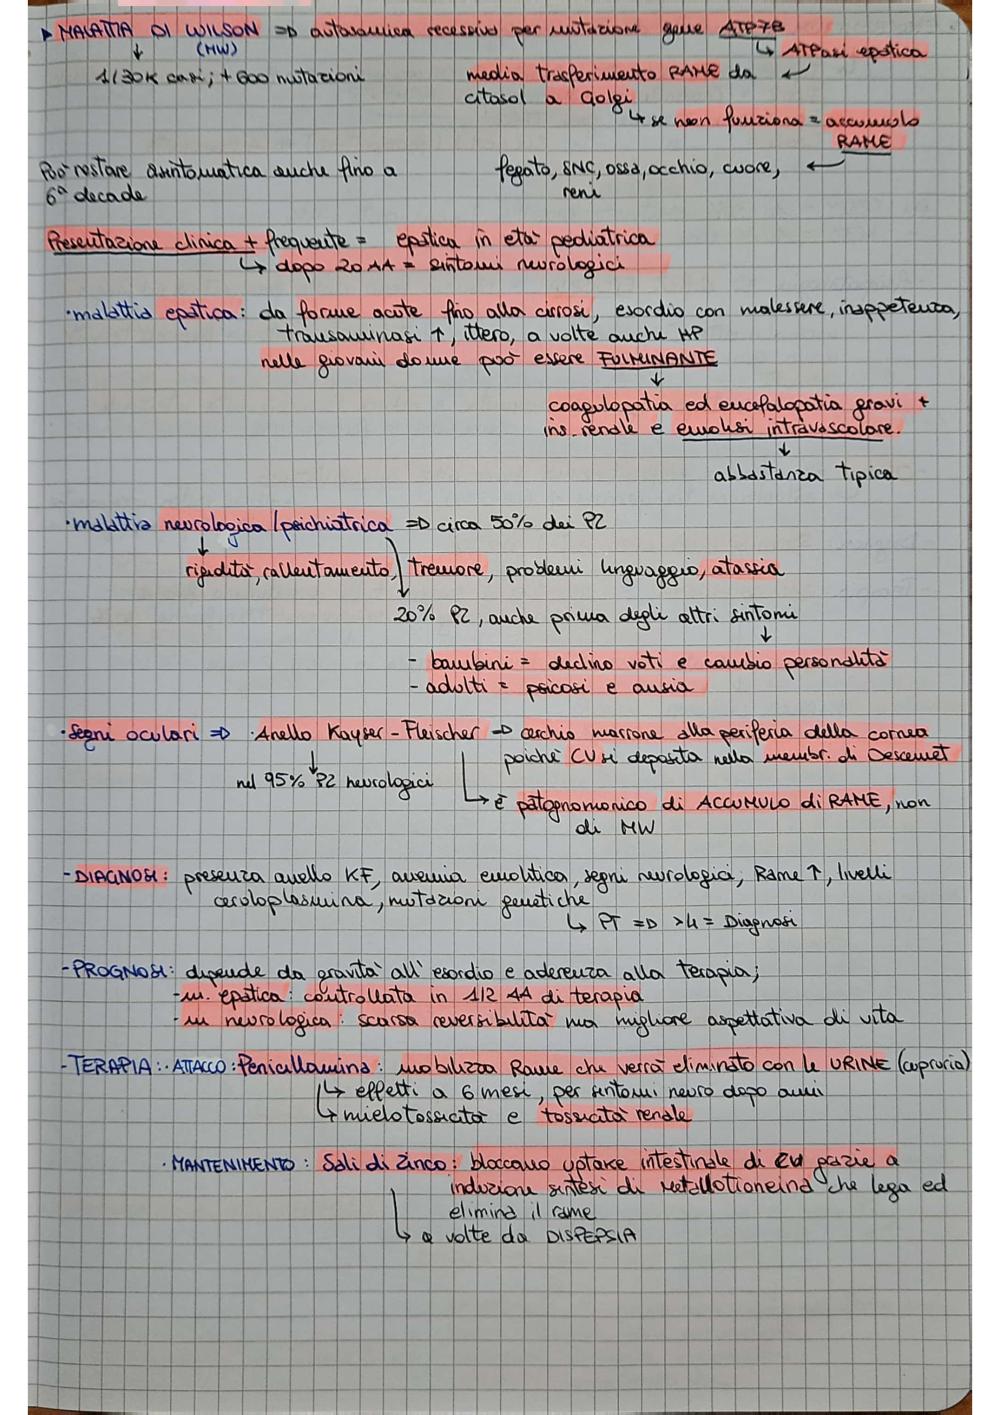 ▶ MALATTIA DI WILSON => autosomica recessiva per mutazione gene ATP7B
(MW)
↳ ATPasi epatica
1/30K casi; + 600 mutazioni
media trasferimento RAME da
citosol a Golgi
↳ se non funziona = accumulo
RAME
Può restare asintomatica anche fino a
6ª decade
fegato, SNC, ossa, occhio, cuore,
reni
Presentazione clinica + frequente = epatica in età pediatrica
↳ dopo 20 AA = sintomi neurologici
· malattia epatica: da forme acute fino alla cirrosi, esordio con malessere, inappetenza,
transaminasi ↑, ittero, a volte anche HP
nelle giovani donne può essere FULMINANTE
↓
coagulopatia ed encefalopatia gravi +
ins. renale e emolisi intravascolare.
↓
abbastanza tipica
· malattia neurologica/psichiatrica => circa 50% dei PZ
rigidità, rallentamento, tremore, problemi linguaggio, atassia
20% PZ, anche prima degli altri sintomi
↓
- bambini = declino voti e cambio personalità
- adulti = psicosi e ansia
· Segni oculari => · Anello Kayser-Fleischer => cerchio marrone alla periferia della cornea
poiché CU si deposita nella membr. di Descemet
nel 95% PZ neurologici
↳ è patognomonico di ACCUMULO di RAME, non
di MW
- DIAGNOSI: presenza anello KF, anemia emolitica, segni neurologici, Rame ↑, livelli
ceruloplasmina, mutazioni genetiche
↳ PT => >4 = Diagnosi
- PROGNOSI: dipende da gravità all'esordio e aderenza alla terapia;
- m. epatica: controllata in 1/2 AA di terapia
- m neurologica: scarsa reversibilità ma migliore aspettativa di vita
- TERAPIA: · ATTACCO: Penicillamina: mobilizza Rame che verrà eliminato con le URINE (cupruria)
↳ effetti a 6 mesi, per sintomi neuro dopo anni
↳ mielotossicità e tossicità renale
· MANTENIMENTO: Sali di Zinco: bloccano uptake intestinale di CU grazie a
induzione sintesi di Metallotioneina che lega ed
elimina il rame
↳ a volte da DISPEPSIA